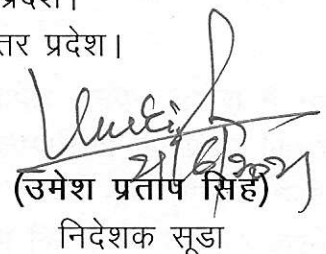 प्रदेश।
तर प्रदेश।
(उमेश प्रताप सिंह)
निदेशक सूडा